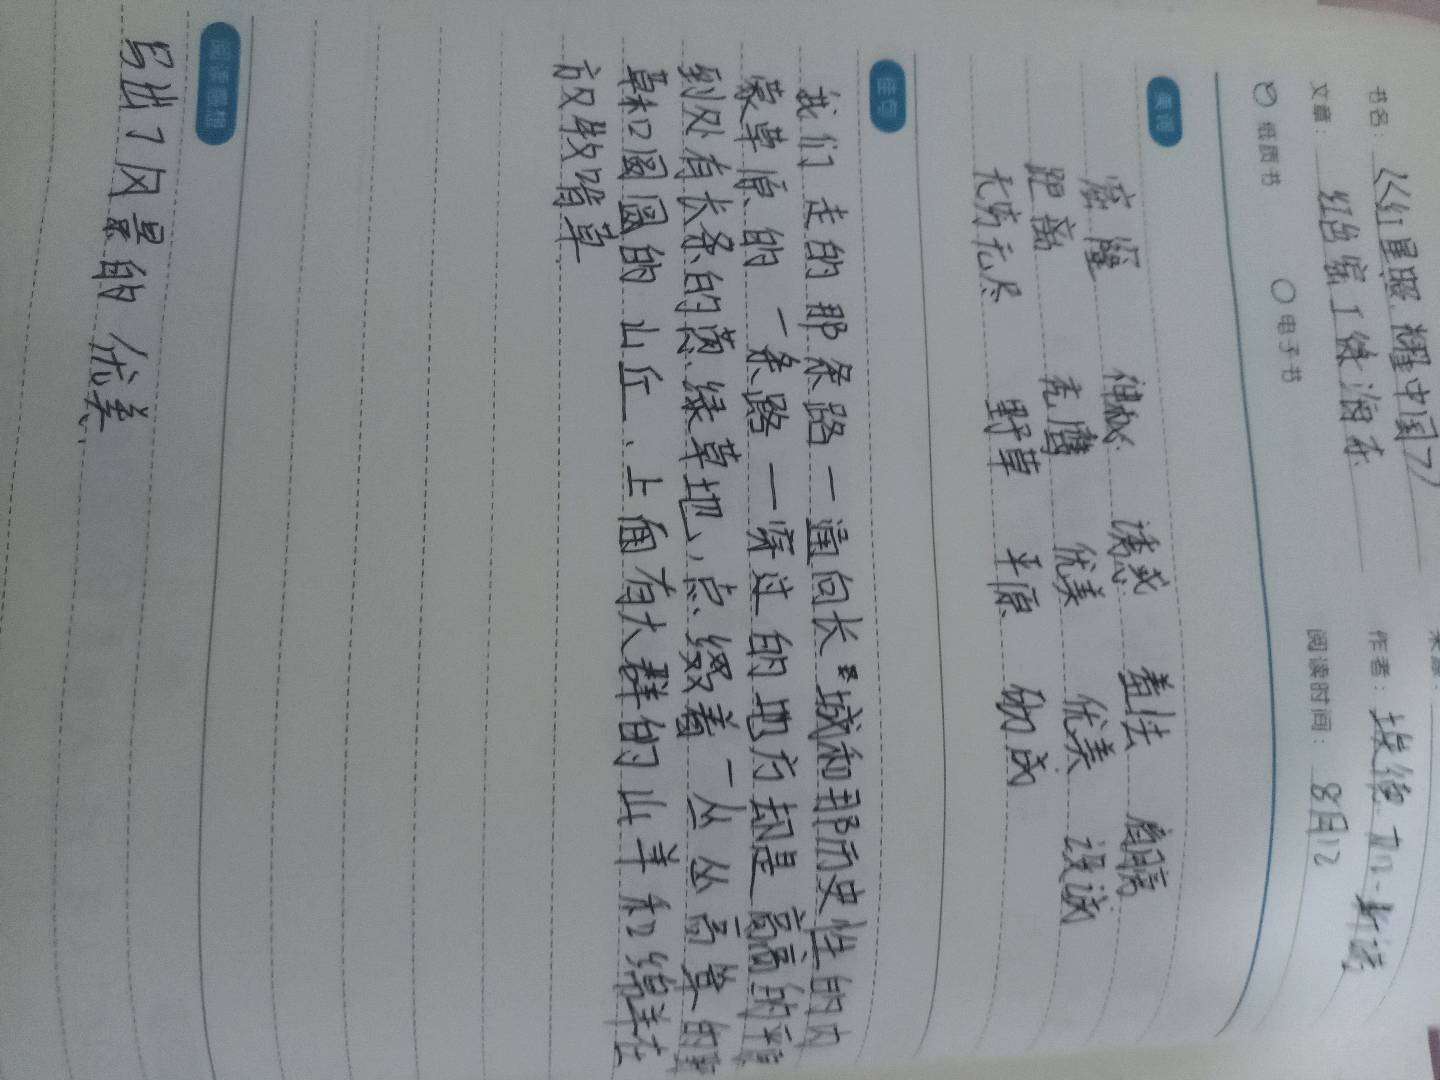 书名：《红星照耀中国》 作者：埃德加·斯诺
文章： 红色窑工徐海东 阅读时间：8月12
纸质书 电子书
美词
窑 神秘 诱惑 羞怯 肩膀
距离 优美 优美
无穷无尽 野草 平原
佳句
我们 走的 那条路 一通向长城和那历史性的内
蒙草原的 一条路 一穿过的地方却是 高高的平
到处有长条的葱绿草地，点缀着 一丛丛 高耸的野
草和圆圆的 山丘、上面有大群的山羊和绵羊在
放牧啃草
阅读感想
写出了风景的优美